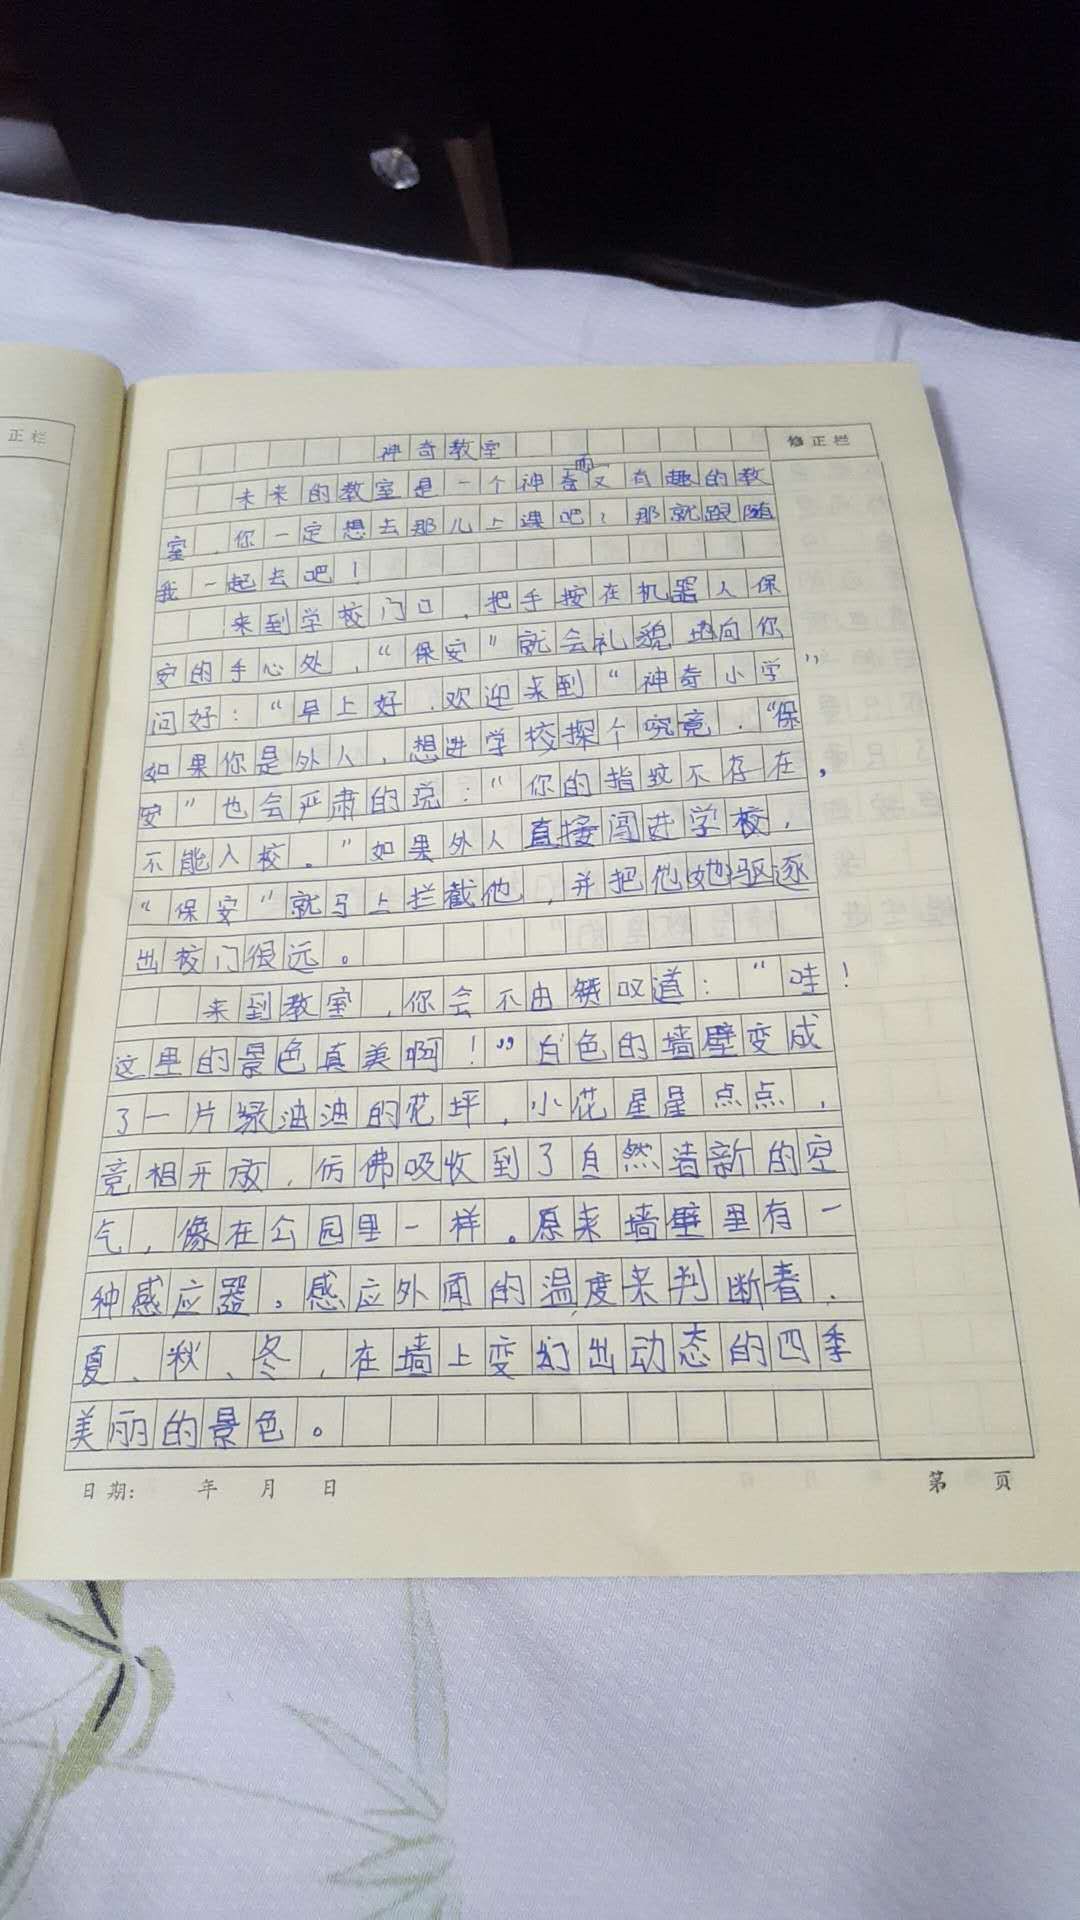 正栏
修正栏
神奇教室
未来的教室是一个神奇而又有趣的教
室，你一定想去那儿上课吧！那就跟随
我一起去吧！
来到学校门口，把手按在机器人保
安的手心处，“保安”就会礼貌地向你
问好：“早上好，欢迎来到“神奇小学”
如果你是外人，想进学校探个究竟，“保
安”也会严肃的说：“你的指纹不存在，
不能入校。”如果外人直接闯进学校，
“保安”就马上拦截他，并把他她驱逐
出校门很远。
来到教室，你会不由赞叹道：“哇！
这里的景色真美啊！”白色的墙壁变成
了一片绿油油的花坪，小花星星点点，
竞相开放，仿佛吸收到了自然清新的空
气，像在公园里一样。原来墙壁里有一
种感应器。感应外面的温度来判断春、
夏、秋、冬，在墙上变幻出动态的四季
美丽的景色。
日期： 年 月 日
第 页